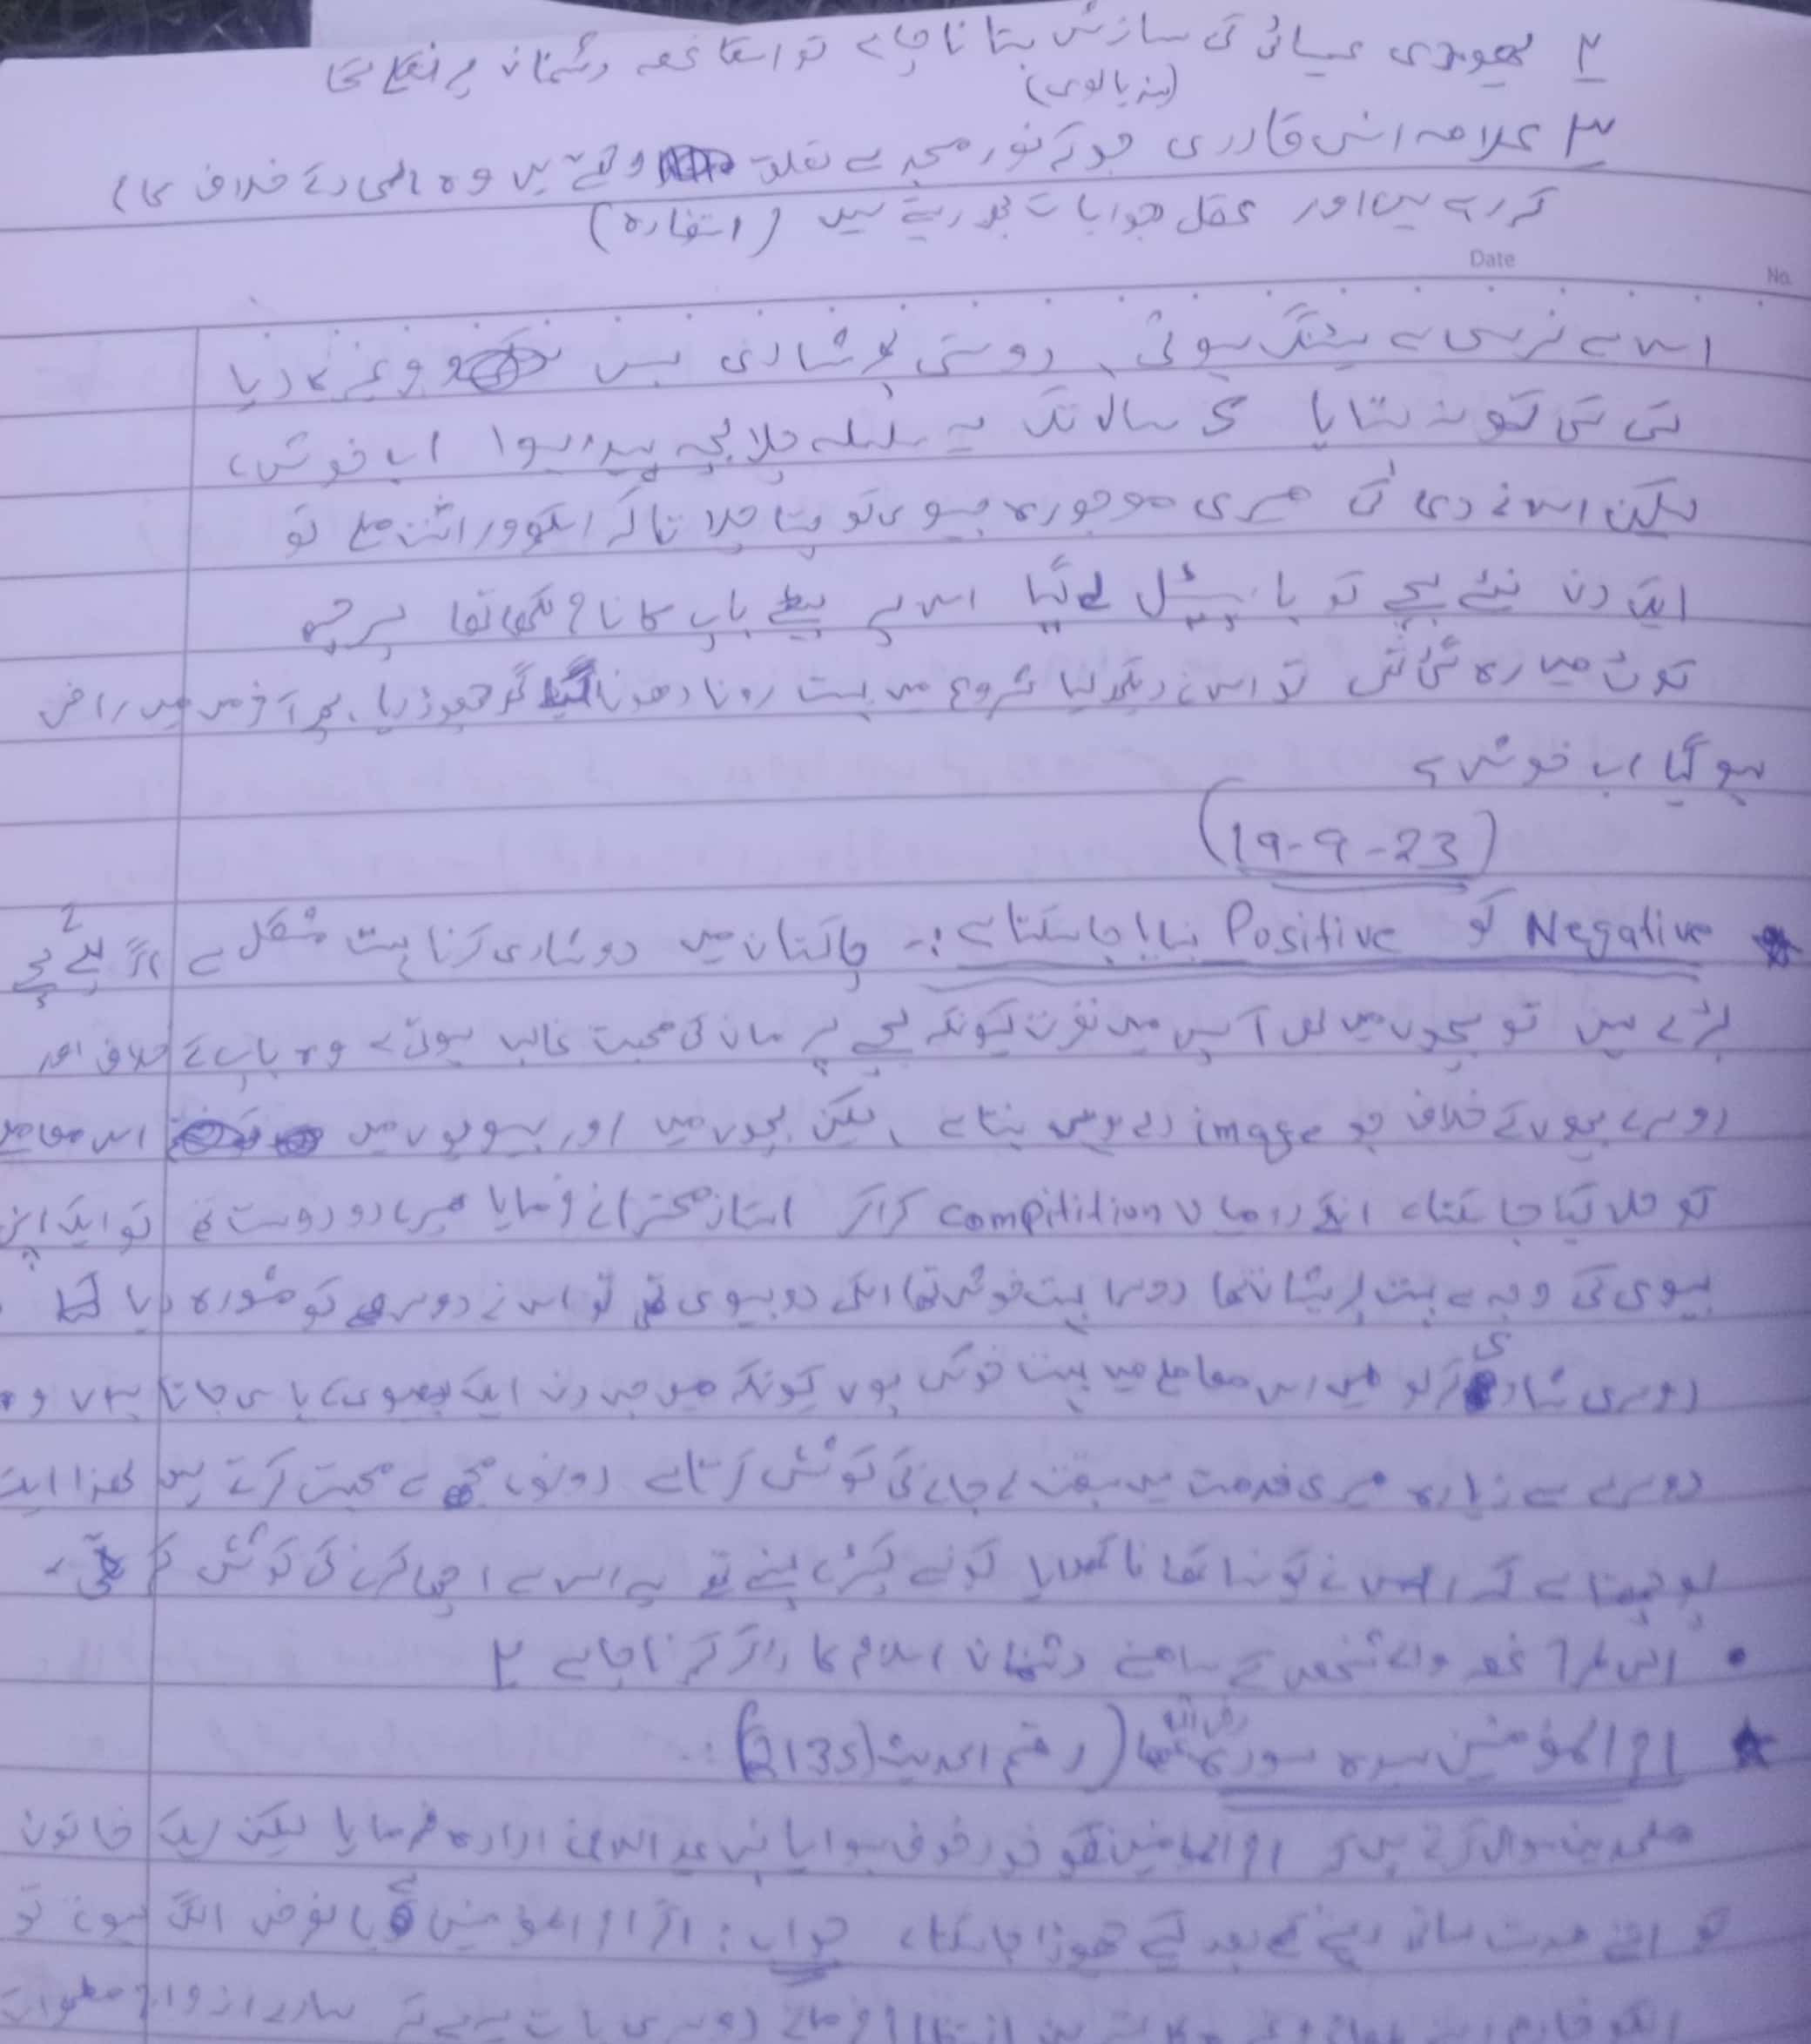 ۲ یھودی عیسائی کی سازش بتانا چاہے تو اسکا غصہ دشمنان پر نکلے گا
(بندیالوی)
۳ علامہ انس قادری جو کہ نور مسجد سے تعلق رکھتے ہیں وہ الحاد کے خلاف کام
کر رہے ہیں اور عقلی جوابات بھی دیتے ہیں (استفادہ)
Date
No.
اس سے نرس سے سیٹنگ ہوئی، دوستی پھر شادی بس وغیرہ کر دیا
کسی کسی کو نہ بتایا کئی سال تک یہ سلسلہ چلا بچہ پیدا ہوا اب خوش،
لیکن اس نے دعا کی میری موجودہ بیوی کو پتا چلا تاکہ اسکو وراثت ملے تو
ایک دن نئے بچے کو ہاسپٹل لے گیا اس پے بیٹے باپ کا نام لکھا تھا پرچہ
کوٹ میں رہ گئی تو اس نے دیکھ لیا شروع میں بہت رونا دھونا گھر چھوڑ دیا، پھر آخر میں راضی
ہو گیا اب خوش ہے
(19-9-23)
Negative کو Positive بنایا جا سکتا ہے:- پاکستان میں دو شادی کرنا بہت مشکل ہے اگر پہلے بچے 2
بڑے ہیں تو بچوں میں بھی آپس میں نفرت کیونکہ بچے پر ماں کی محبت غالب ہوتی ہے وہ باپ کے خلاف اور
دوسرے بچوں کے خلاف جو image دے وہی بنتا ہے، لیکن بچوں میں اور بیویوں میں اس معاملے
کو حل کیا جا سکتا ہے انکے درمیان compitition کرا کر استاذ محترم نے فرمایا میرے دو دوست تھے تو ایک اپنی
بیوی کی وجہ سے بہت پریشان تھا دوسرا بہت خوش تھا اسکی دو بیوی تھی تو اس نے دوسرے کو مشورہ دیا
دوسری شادی کر لو میں اس معاملے میں بہت خوش ہوں کیونکہ میں جس دن ایک بیوی کے پاس جاتا ہوں وہ
دوسرے سے زیادہ میری خدمت میں سبقت لے جانے کی کوشش کرتا ہے دونوں مجھ سے محبت کرتے ہیں لھذا ایک
پوچھتا ہے کہ اس نے کونسا کھانا کھلایا کونسے کپڑے پہنے تو یہ اس سے اچھا کرنے کی کوشش کرتی ہے
• اسی طرح غصہ والے شخص کے سامنے دشمنان اسلام کا ذکر کرنا چاہے ۲
ام المؤمنین سیدہ سودہ رضی اللہ عنھا (رقم الحدیث 2135):
ملحدین سوال کرتے ہیں کہ ام المؤمنین کو خود خوف ہوا یا نبی علیہ السلام نے ارادہ فرمایا لیکن ایک خاتون
کو اتنے مدت ساتھ رہنے کے بعد کیسے چھوڑا جا سکتا ہے جواب: اگر ام المؤمنین بالفرض الگ ہوتے تو